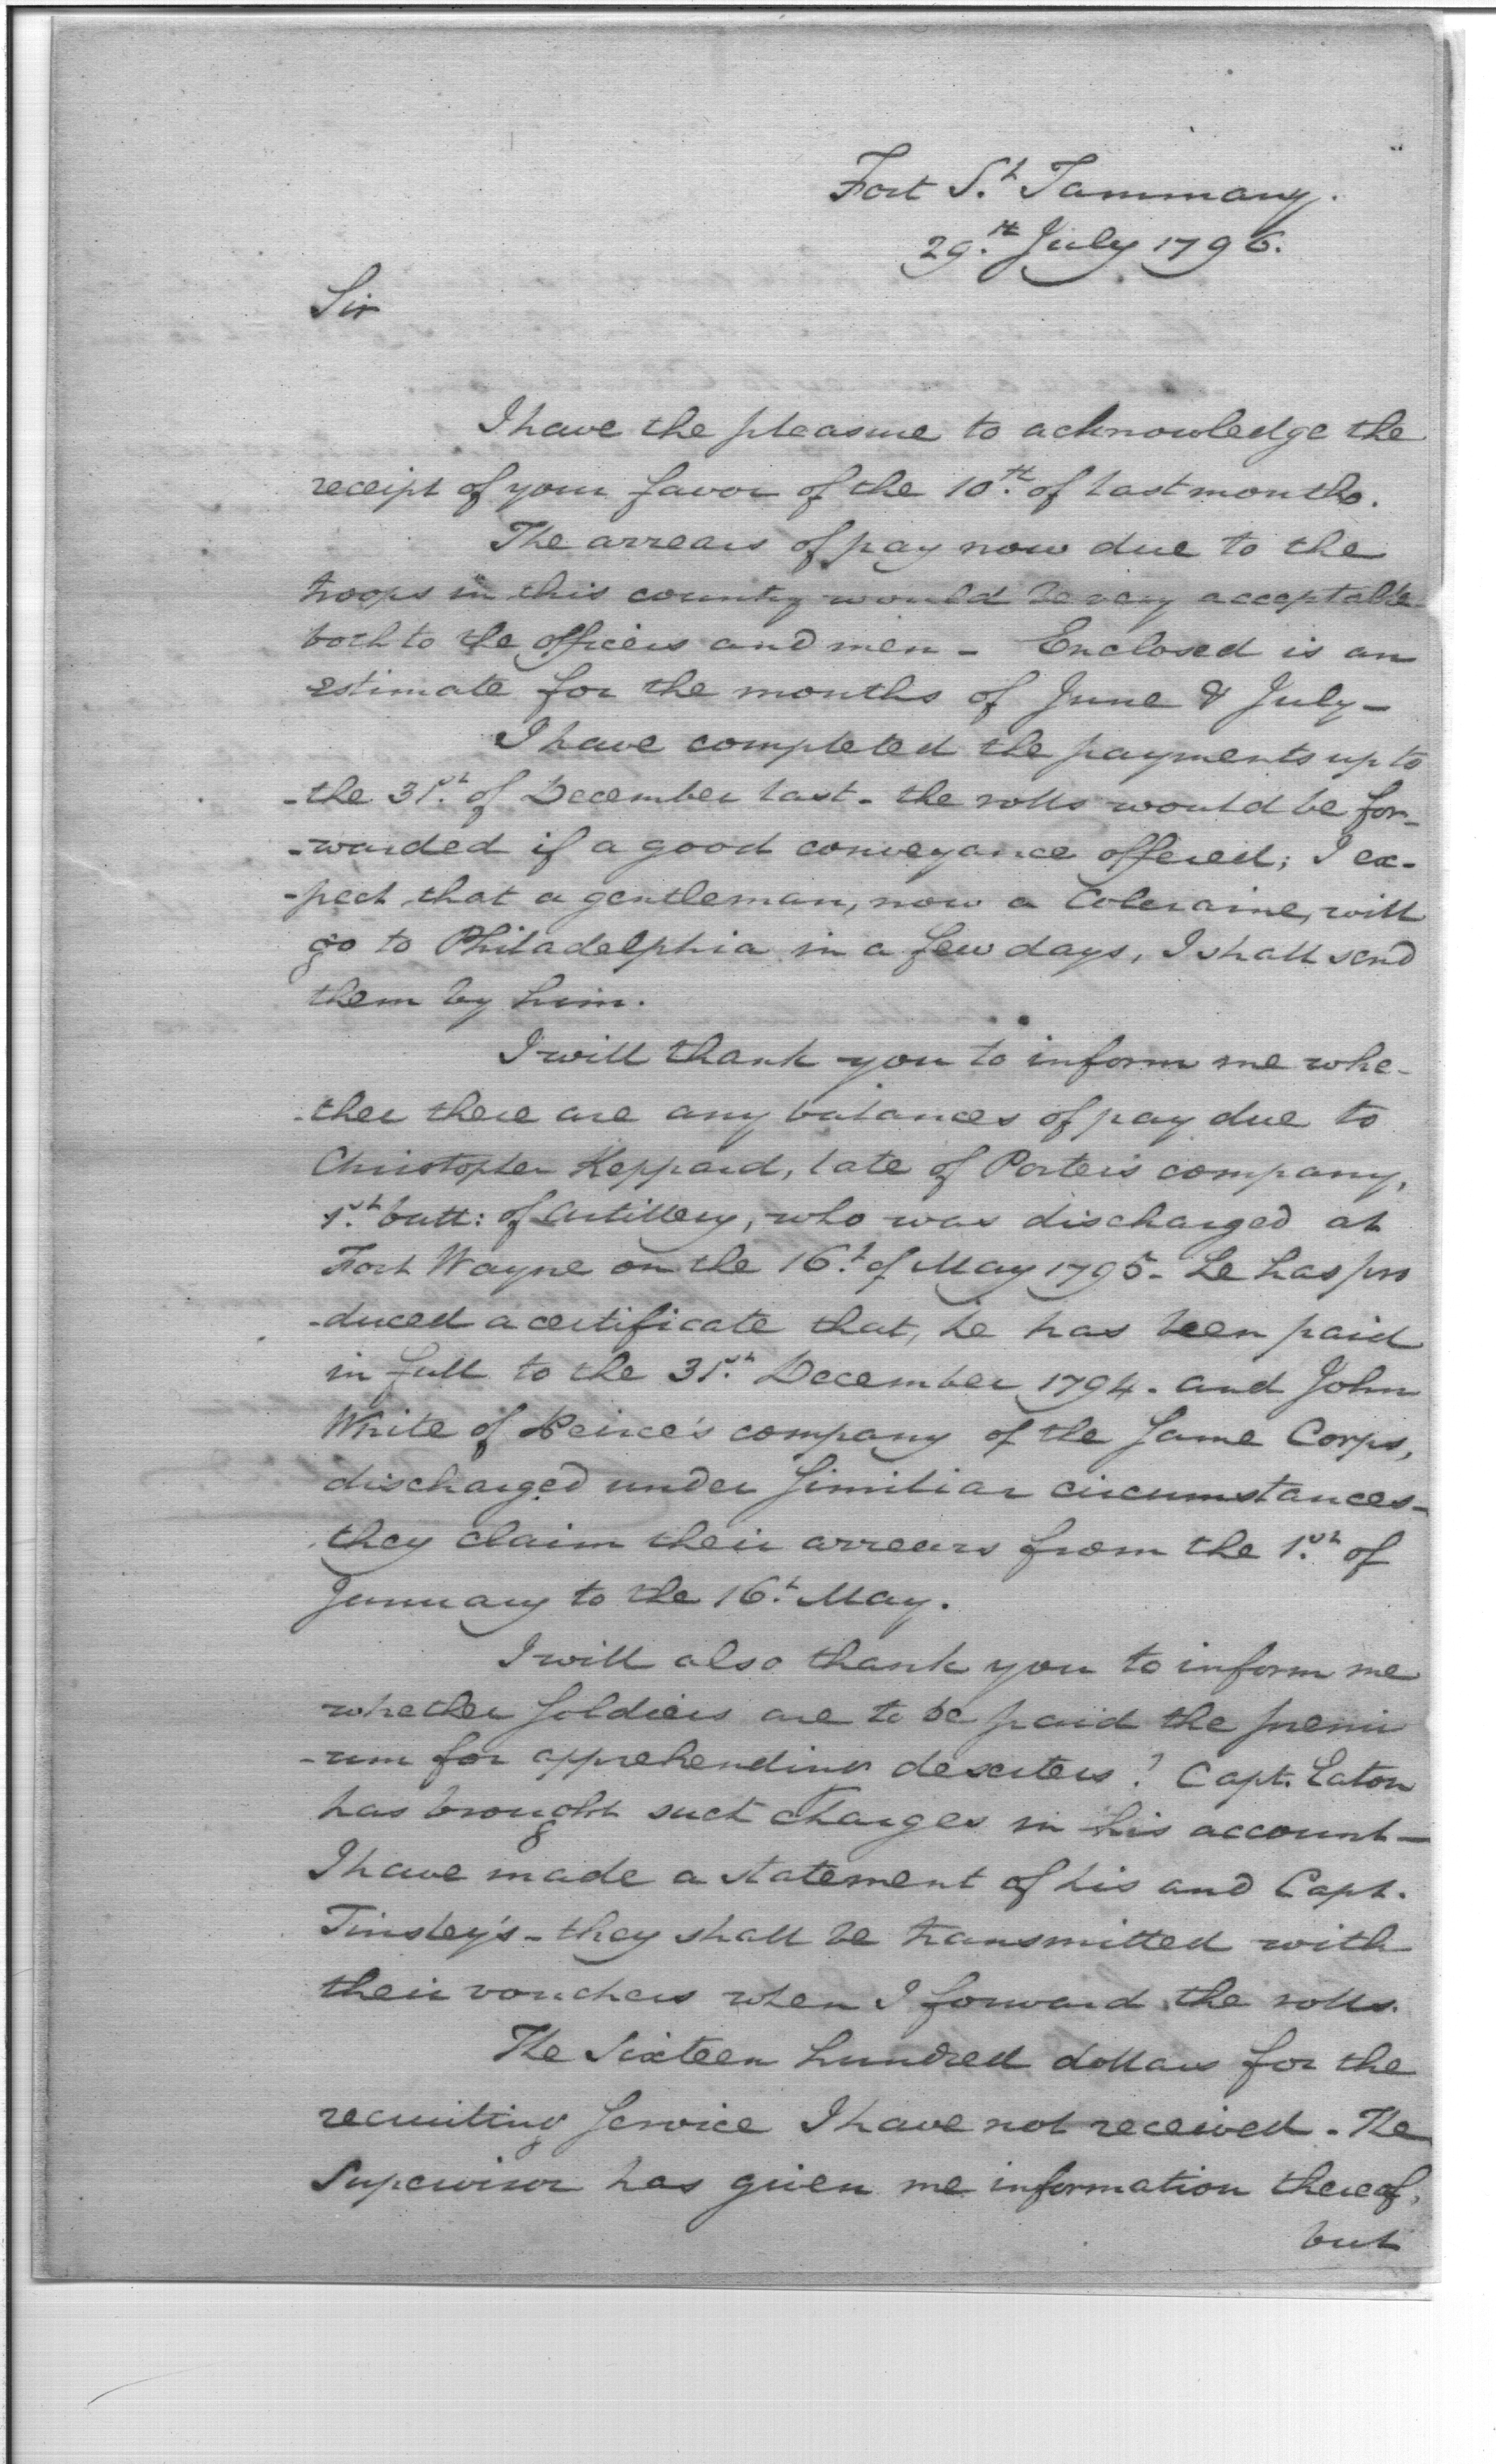 Fort St. Tammany.
29.th July 1796.
Sir
I have the pleasure to acknowledge the
receipt of your favor of the 10.th of last month.
The arrears of pay now due to the
troops in this country would be very acceptable
both to the officers and men - Enclosed is an
estimate for the months of June & July -
I have completed the payments up to
-the 31.st of December last - the rolls would be for-
-warded if a good conveyance offered; I ex-
-pect that a gentleman, now a Coleraine, will
go to Philadelphia in a few days, I shall send
them by him.
I will thank you to inform me whe-
-ther there are any balances of pay due to
Christopher Keppard, late of Porter's company,
1.st batt: of artillery, who was discharged at
Fort Wayne on the 16.t of May 1795 - he has pro
-duced a certificate that, he has been paid
in full to the 31.st December 1794 - and John
White of Peirce's company of the same Corps,
discharged under similiar circumstances -
they claim their arrears from the 1.st of
January to the 16.t May.
I will also thank you to inform me
whether soldiers are to be paid the premi
-um for apprehending deserters? Capt. Eaton
has brought such charges in his account -
I have made a statement of his and Capt.
Tinsley's - they shall be transmitted with
their vouchers when I forward the rolls.
The Sixteen hundred dollars for the
recruiting service I have not received - The
Supervisor has given me information thereof,
but